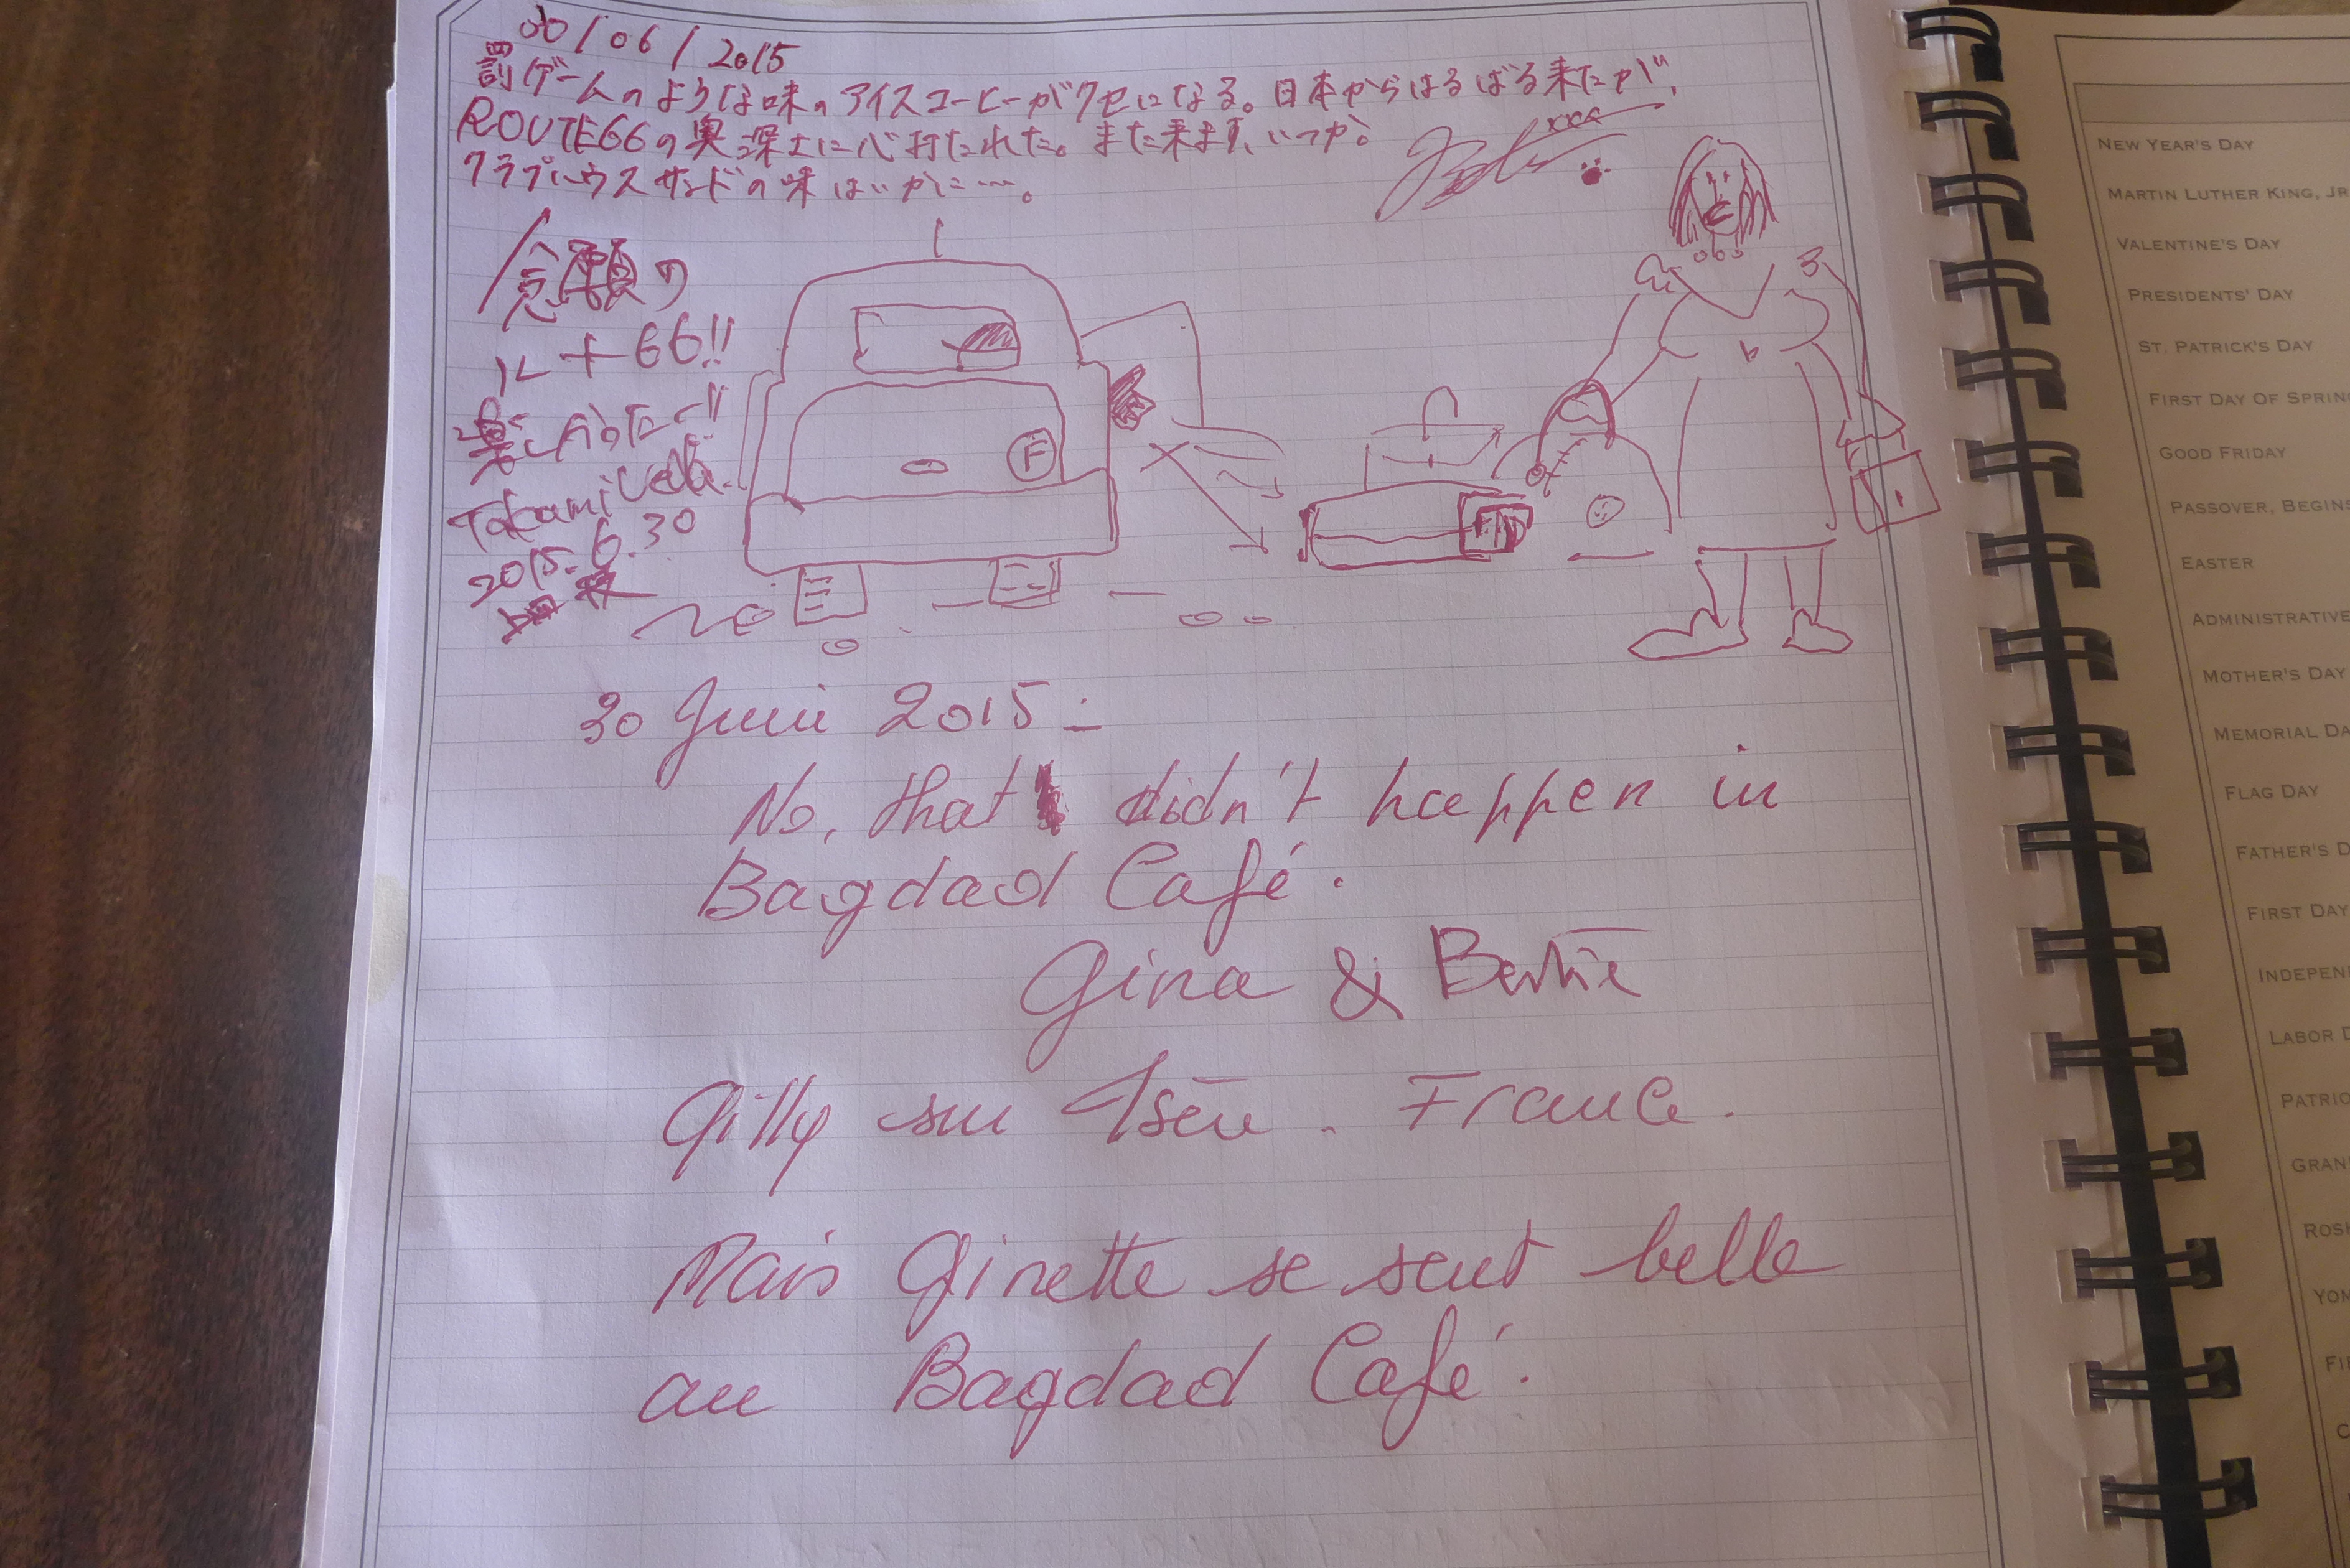 30/06/2015
罰ゲームのような味のアイスコーヒーがクセになる。日本からはるばる来たが、
ROUTE66の奥深さに心打たれた。また来ます、いつか。
クラブハウスサンドの味はいかに…。
念願の
ルート66!!
楽しかったー!!
Takami Ueda.
2015.6.30
F
30 Juin 2015:
No, that didn't happen in
Bagdad Café.
Gina & Bertie
Gilly sur Isère. France.
Mais Ginette se sent belle
au Bagdad Café.
NEW YEAR'S DAY
MARTIN LUTHER KING, JR
VALENTINE'S DAY
PRESIDENTS' DAY
ST. PATRICK'S DAY
FIRST DAY OF SPRIN
GOOD FRIDAY
PASSOVER, BEGINS
EASTER
ADMINISTRATIVE
MOTHER'S DAY
MEMORIAL DA
FLAG DAY
FATHER'S D
FIRST DAY
INDEPEN
LABOR D
PATRIO
GRAN
ROSH
YOM